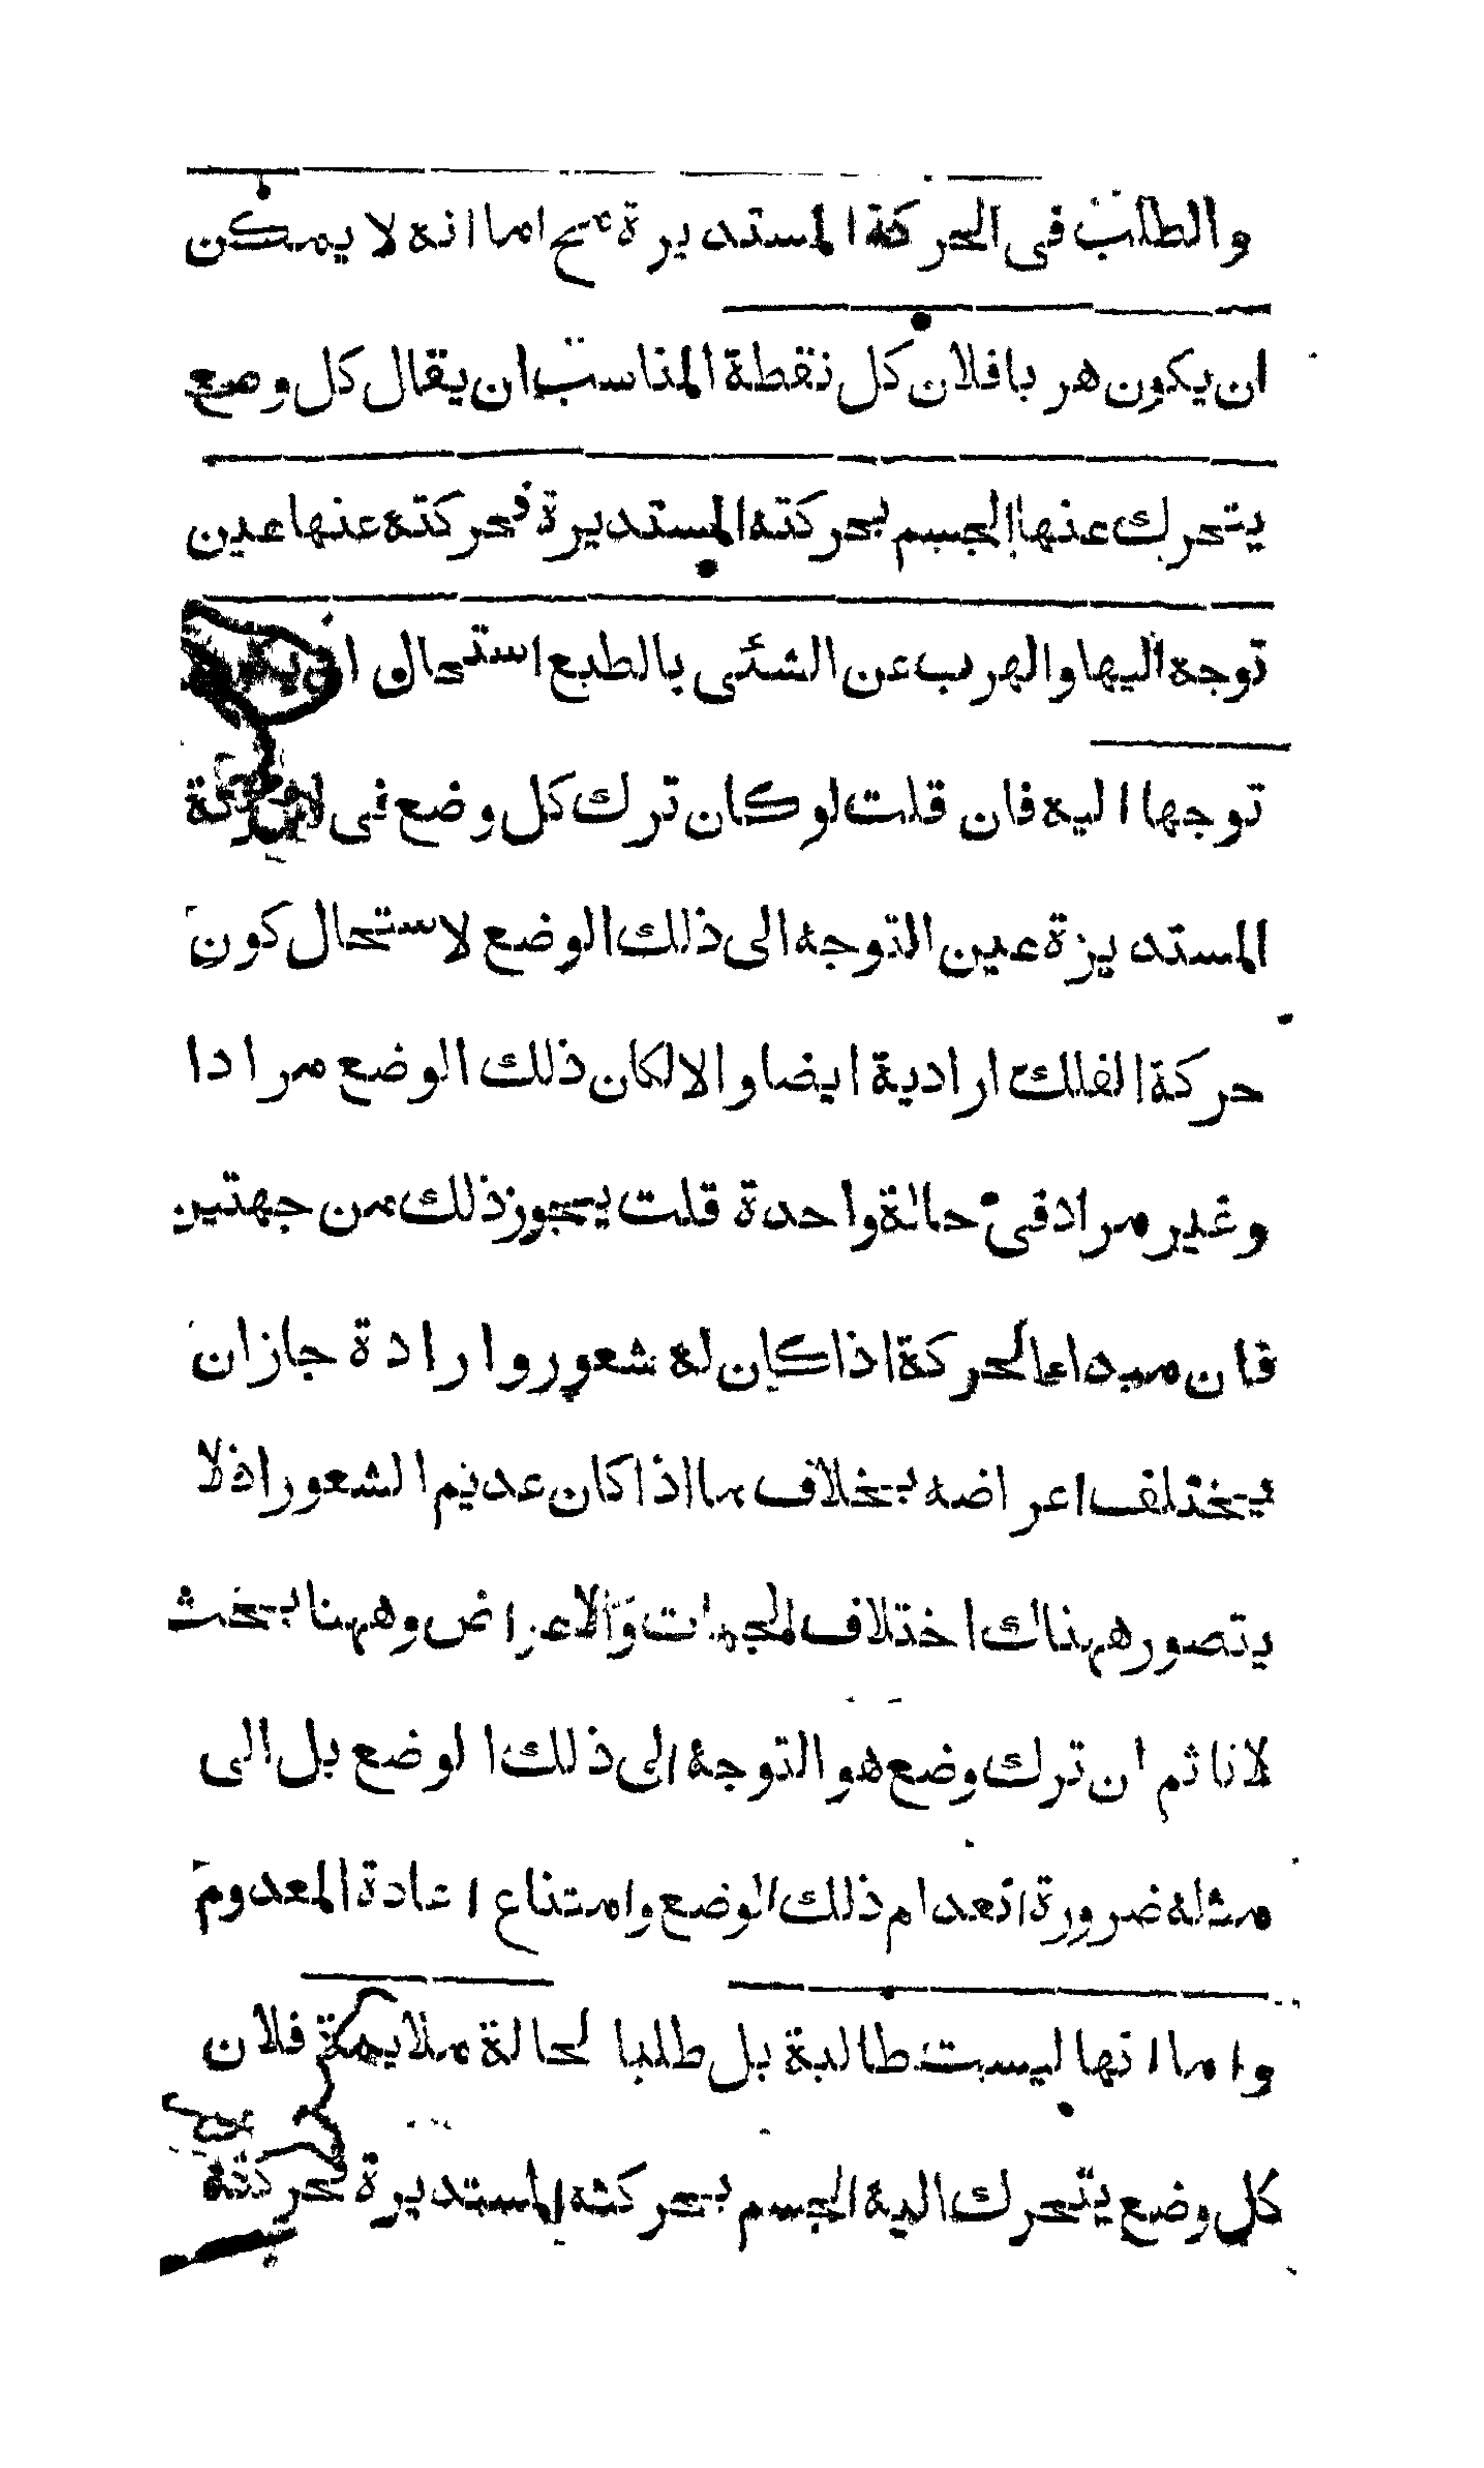 والطلب فى الحركة المستديرة مح اما انه لا يمكن
ان يكون هربا فلان كل نقطة المناسب ان يقال كل وضع
يتحرك عنها الجسم بحركته المستديرة فحركته عنها عين
توجه اليها والهرب عن الشئى بالطبع استحال ان يكون
توجها اليه فان قلت لو كان ترك كل وضع فى
المستديرة عين التوجه الى ذلك الوضع لاستحال كون
حركة الفلك ارادية ايضا والا لكان ذلك الوضع مرادا
وغير مراد فى حالة واحدة قلت يجوز ذلك من جهتين
فان مبدا الحركة اذا كان له شعور وارادة جاز ان
يختلف اعراضه بخلاف ما اذا كان عديم الشعور اذ لا
يتصور ههناك اختلاف الجهات والاعراض وههنا بحث
لانا ثم ان ترك وضع هو التوجه الى ذلك الوضع بل الى
مثله ضرورة انعدام ذلك الوضع وامتناع اعادة المعدوم
واما انها ليست طالبة بل طلبا لحالة ملايمة فلان
كل وضع يتحرك اليه الجسم بحركته المستديرة فحركته